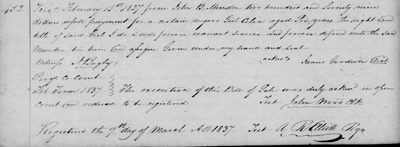 Rec'd February 15th 1837 from John B. Munden two hundred and Seventy nine
dollars in full payment for a certain negro Girl Celia aged Six years the right and
title of said Girl I do from and forever defend unto the said
Munden his heirs and assigns Given under my hand and seal
Witness James Goodwin Seal
Perqs Co Court
Feb Term 1837 The execution of this Bill of Sale was duly acknd in open
Court and ordered to be registered Test John Wood Clk
Registered the 9th day of March AD 1837 Test Regr